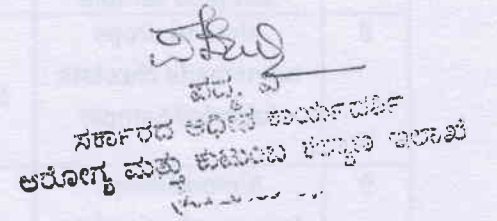 ಪದ್ಮ ವಿ
ಸರ್ಕಾರದ ಅಧೀನ ಕಾರ್ಯದರ್ಶಿ
ಆರೋಗ್ಯ ಮತ್ತು ಕುಟುಂಬ ಕಲ್ಯಾಣ ಇಲಾಖೆ